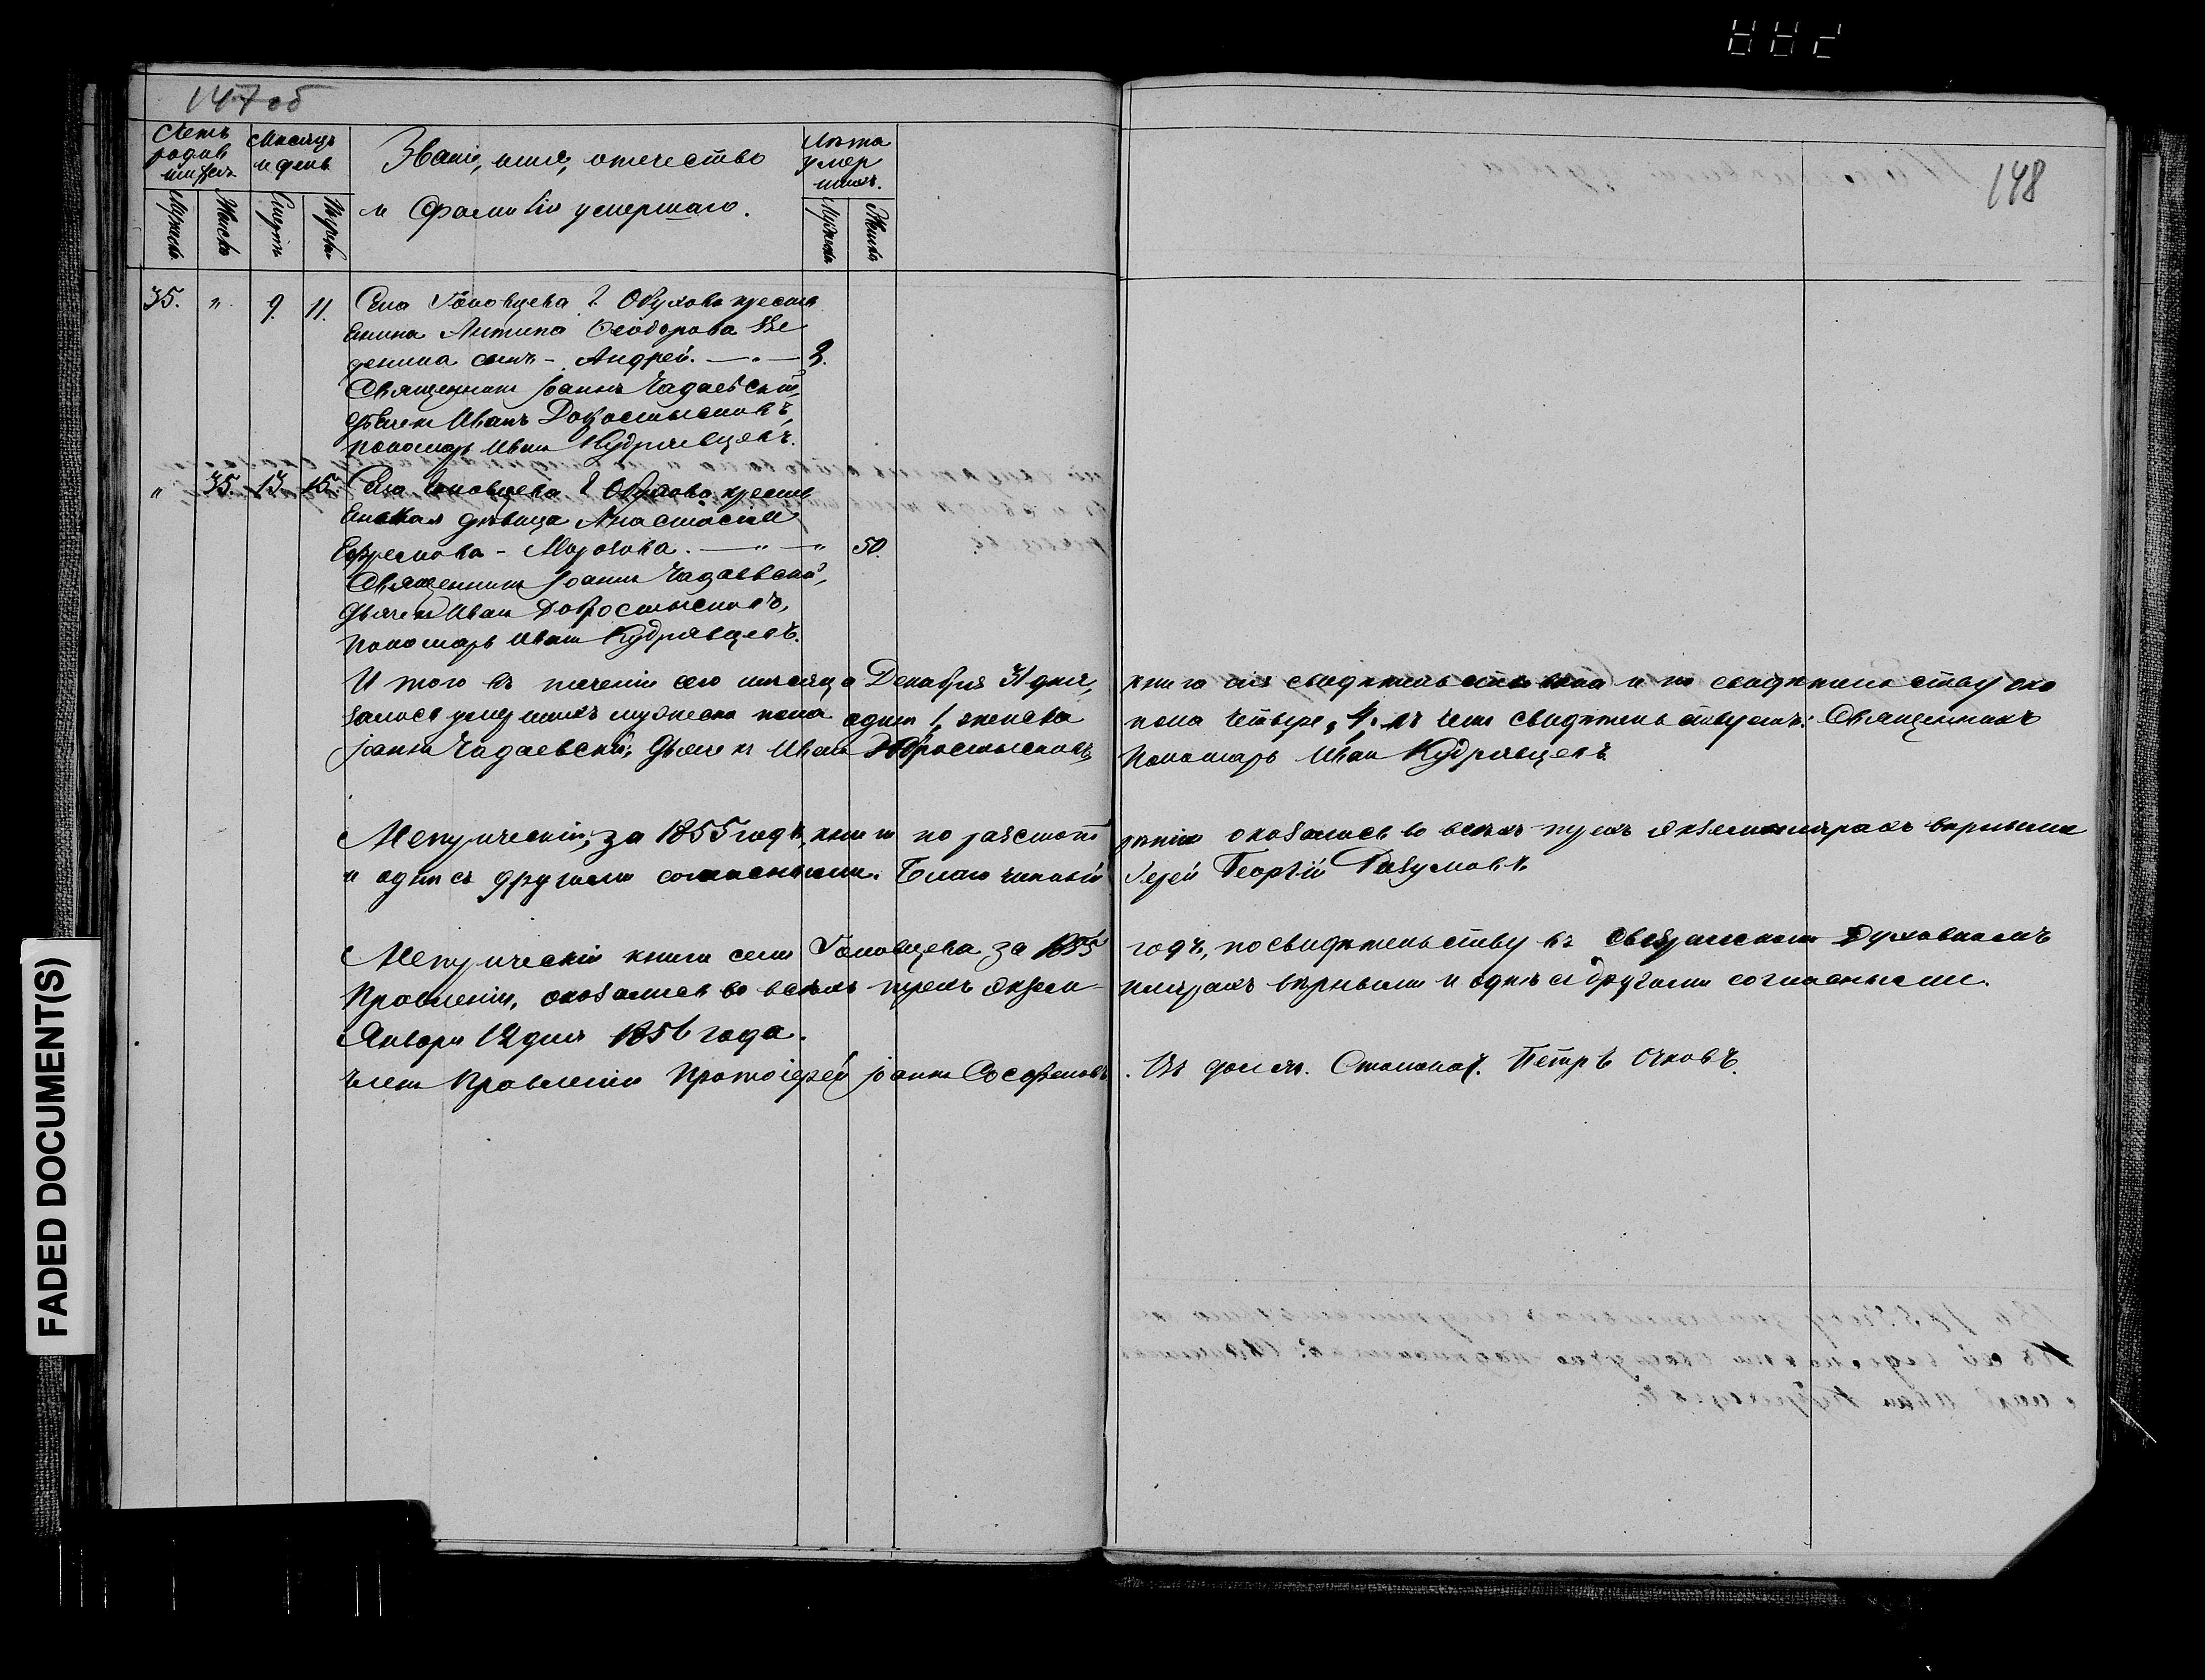 147 об
148
Летъ родив шихся
Месяцъ и день
Званіе, имя, отечество
и Фамилія умершаго.
Лѣта умер шихъ.
Мужеск. Женска Смерти Погреб. Мужеска Женска
35. " 9. 11. Села Головцева г. Обухова кресть
янина Антипа Ѳеодорова
сынъ - Андрей. — " — 3.
Священникъ Іоаннъ Чадаевскій,
Дьячекъ Иванъ Добросмысловъ,
пономарь Иванъ Кудрявцевъ.
" 35. 13. 15. Села Головцева г. Обухова кресть
янская дѣвица Анастасія
Ефремова - Морозова. — " — " 50.
Священникъ Іоаннъ Чадаевскій,
Дьячекъ Иванъ Добросмысловъ,
Пономарь Иванъ Кудрявцевъ.
И того въ теченіи сего мѣсяца Декабря 31 дня, книга сія свидѣтельствована и по свидѣтельству ока
залось умершихъ мужеска пола одинъ 1, женска пола четыре, 4. въ чемъ свидѣтельствуемъ: Священникъ
Іоаннъ Чадаевскій, Дьячекъ Иванъ Добросмысловъ, Пономарь Иванъ Кудрявцевъ
Метрическія, за 1855 годъ, книги по разсмот рѣнію оказались во всѣхъ трехъ экземплярахъ вѣрными
и однѣ съ другими согласными. Благочинный Іерей Георгій Разумовъ
Метрическія книги села Головцева за 1855 годъ, по свидѣтельству въ Духовномъ
Правленіи, оказались во всѣхъ трехъ экзем- плярахъ вѣрными и однѣ съ другими согласными.
Января 12 дня 1856 года.
Членъ Правленія Протоіерей Іоаннъ . Въ долж. Столонач. Петръ Очковъ.
FADED DOCUMENT(S)